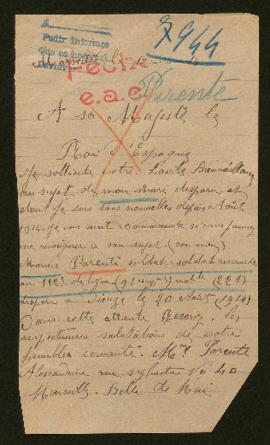 7944
Pedir Informes
que se
Fecha
Parente
e.a.c.
A sa Majesté le
Roi d'Espagne
Je sollicite votre haute Bienveillance
au sujet de mon mari disparu et
dont je suis sans nouvelles depuis Août
1914. Je vous serai reconnaissante si vous pouvez
me renseigner à son sujet (son nom)
Parente soldat
au 112e de ligne
disparu à Dieuze le 20 Août (1914)
Dans cette attente Recevez les
respectueuses salutations de votre
humble servante. Mme Parente
Alexandrine rue
Marseille. Belle de Mai